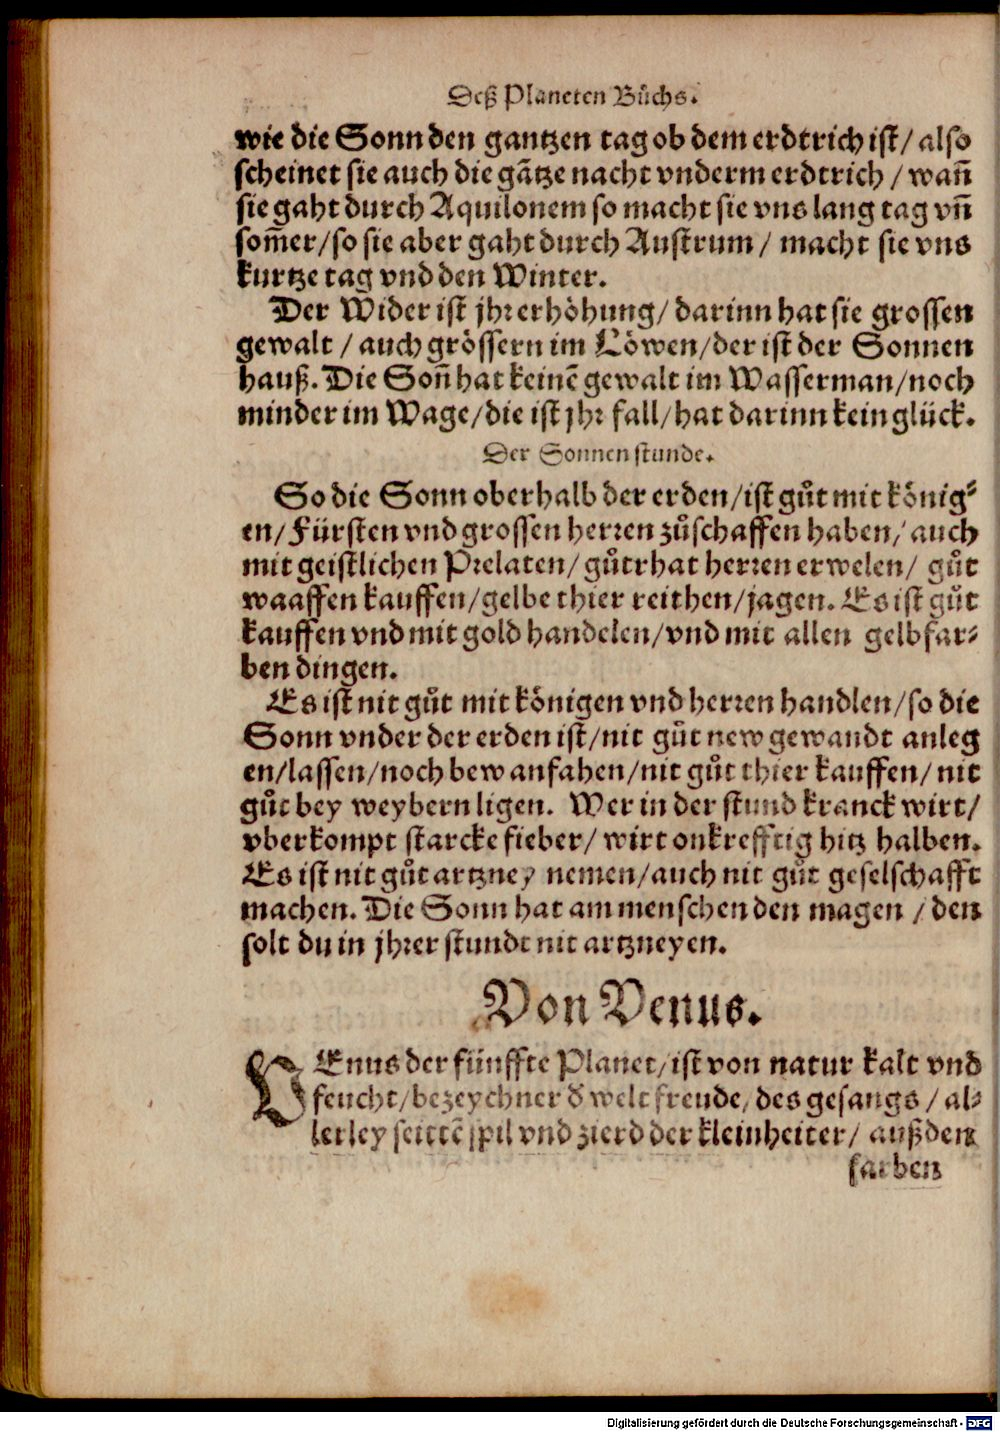 Deß Planeten Bůchs.
wie die Sonn den gantzen tag ob dem erdtrich ist/ also
scheinet sie auch die gãtze nacht vnderm erdtrich / wañ
sie gaht durch Aquilonem so macht sie vns lang tag vñ
som̃er/so sie aber gaht durch Austrum / macht sie vns
kurtze tag vnd den Winter.
Der Wider ist jhr erhöhung/ darinn hat sie grossen
gewalt / auch grössern im Löwen/der ist der Sonnen
hauß. Die Soñ hat keinẽ gewalt im Wasserman/noch
minder im Wage/die ist jhr fall/hat darinn kein glück.
Der Sonnen stunde.
So die Sonn oberhalb der erden/ist gůt mit könig⸗
en/Fürsten vnd grossen herren zůschaffen haben/ auch
mit geistlichen Prelaten/ gůt rhat herren erwelen/ gůt
waaffen kauffen/gelbe thier reithen/jagen. Es ist gůt
kauffen vnd mit gold handelen/vnd mit allen gelbfar⸗
ben dingen.
Es ist nit gůt mit königen vnd herren handlen/so die
Sonn vnder der erden ist/nit gůt new gewandt anleg
en/lassen/noch bew anfahen/nit gůt thier kauffen/ nit
gůt bey weybern ligen. Wer in der stund kranck wirt/
vberkompt starcke fieber/ wirt onkrefftig hitz halben.
Es ist nit gůt artzney nemen/auch nit gůt geselschafft
machen. Die Sonn hat am menschen den magen / den
solt du in jhrer stundt nit artzneyen.
Von Venus.
VEnus der fünffte Planet/ist von natur kalt vnd
feucht/bezeychner d̃ welt freude/ des gesangs / al⸗
lerley seittẽ spil vnd zierd der kleinheiter/ auß den
farben
Digitalisierung gefördert durch die Deutsche Forschungsgemeinschaft - DFG